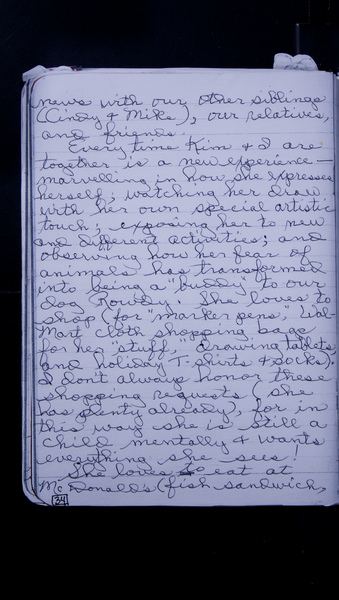 news with our other siblings
(Cindy & Mike), our relatives,
and friends.
Every time Kim & I are
together is a new experience—
marvelling in how she expresses
herself; watching her draw
with her own special artistic
touch; exposing her to new
and different activities; and
observing how her fear of
animals has transformed
into being a "buddy" to our
dog Rowdy. She loves to
shop (for "marker pens," Wal-
Mart cloth shopping bags
for her "stuff," drawing tablets,
and holiday T-shirts & socks).
I don't always honor these
shopping requests (she
has plenty already), for in
this way she is still a
child mentally & wants
everything she sees!
She loves to eat at
McDonald's (fish sandwich,
34